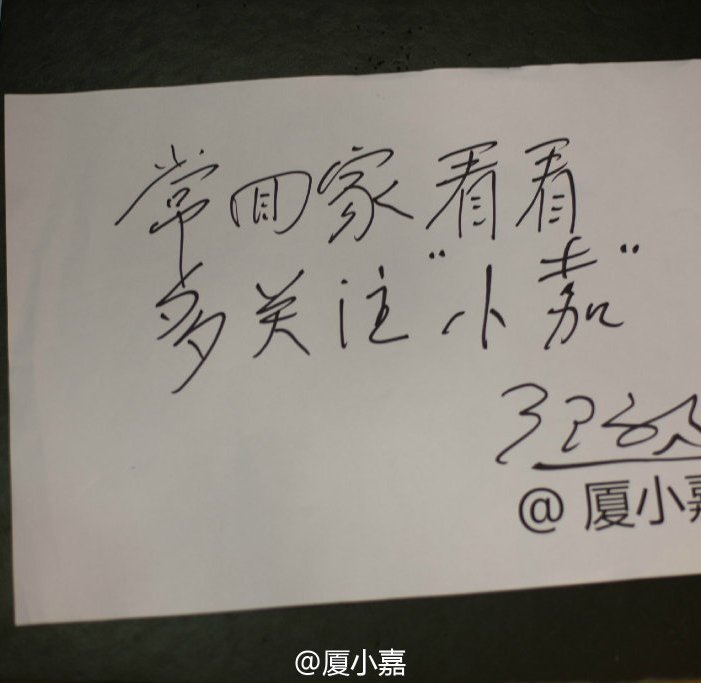 常回家看看
多关注“小嘉”
@厦小嘉
@厦小嘉